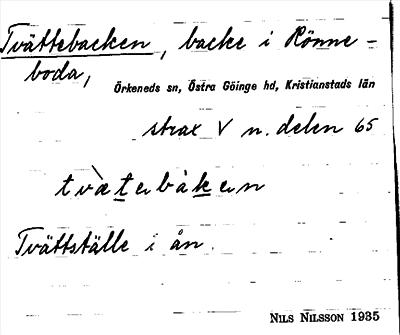 Tvättebacken, backe i Rönne-
boda,
Örkeneds sn, Östra Göinge hd, Kristianstads län
strax V n. delen 65
tvæ̀tebàken
Tvättställe i ån.
NILS NILSSON 1935